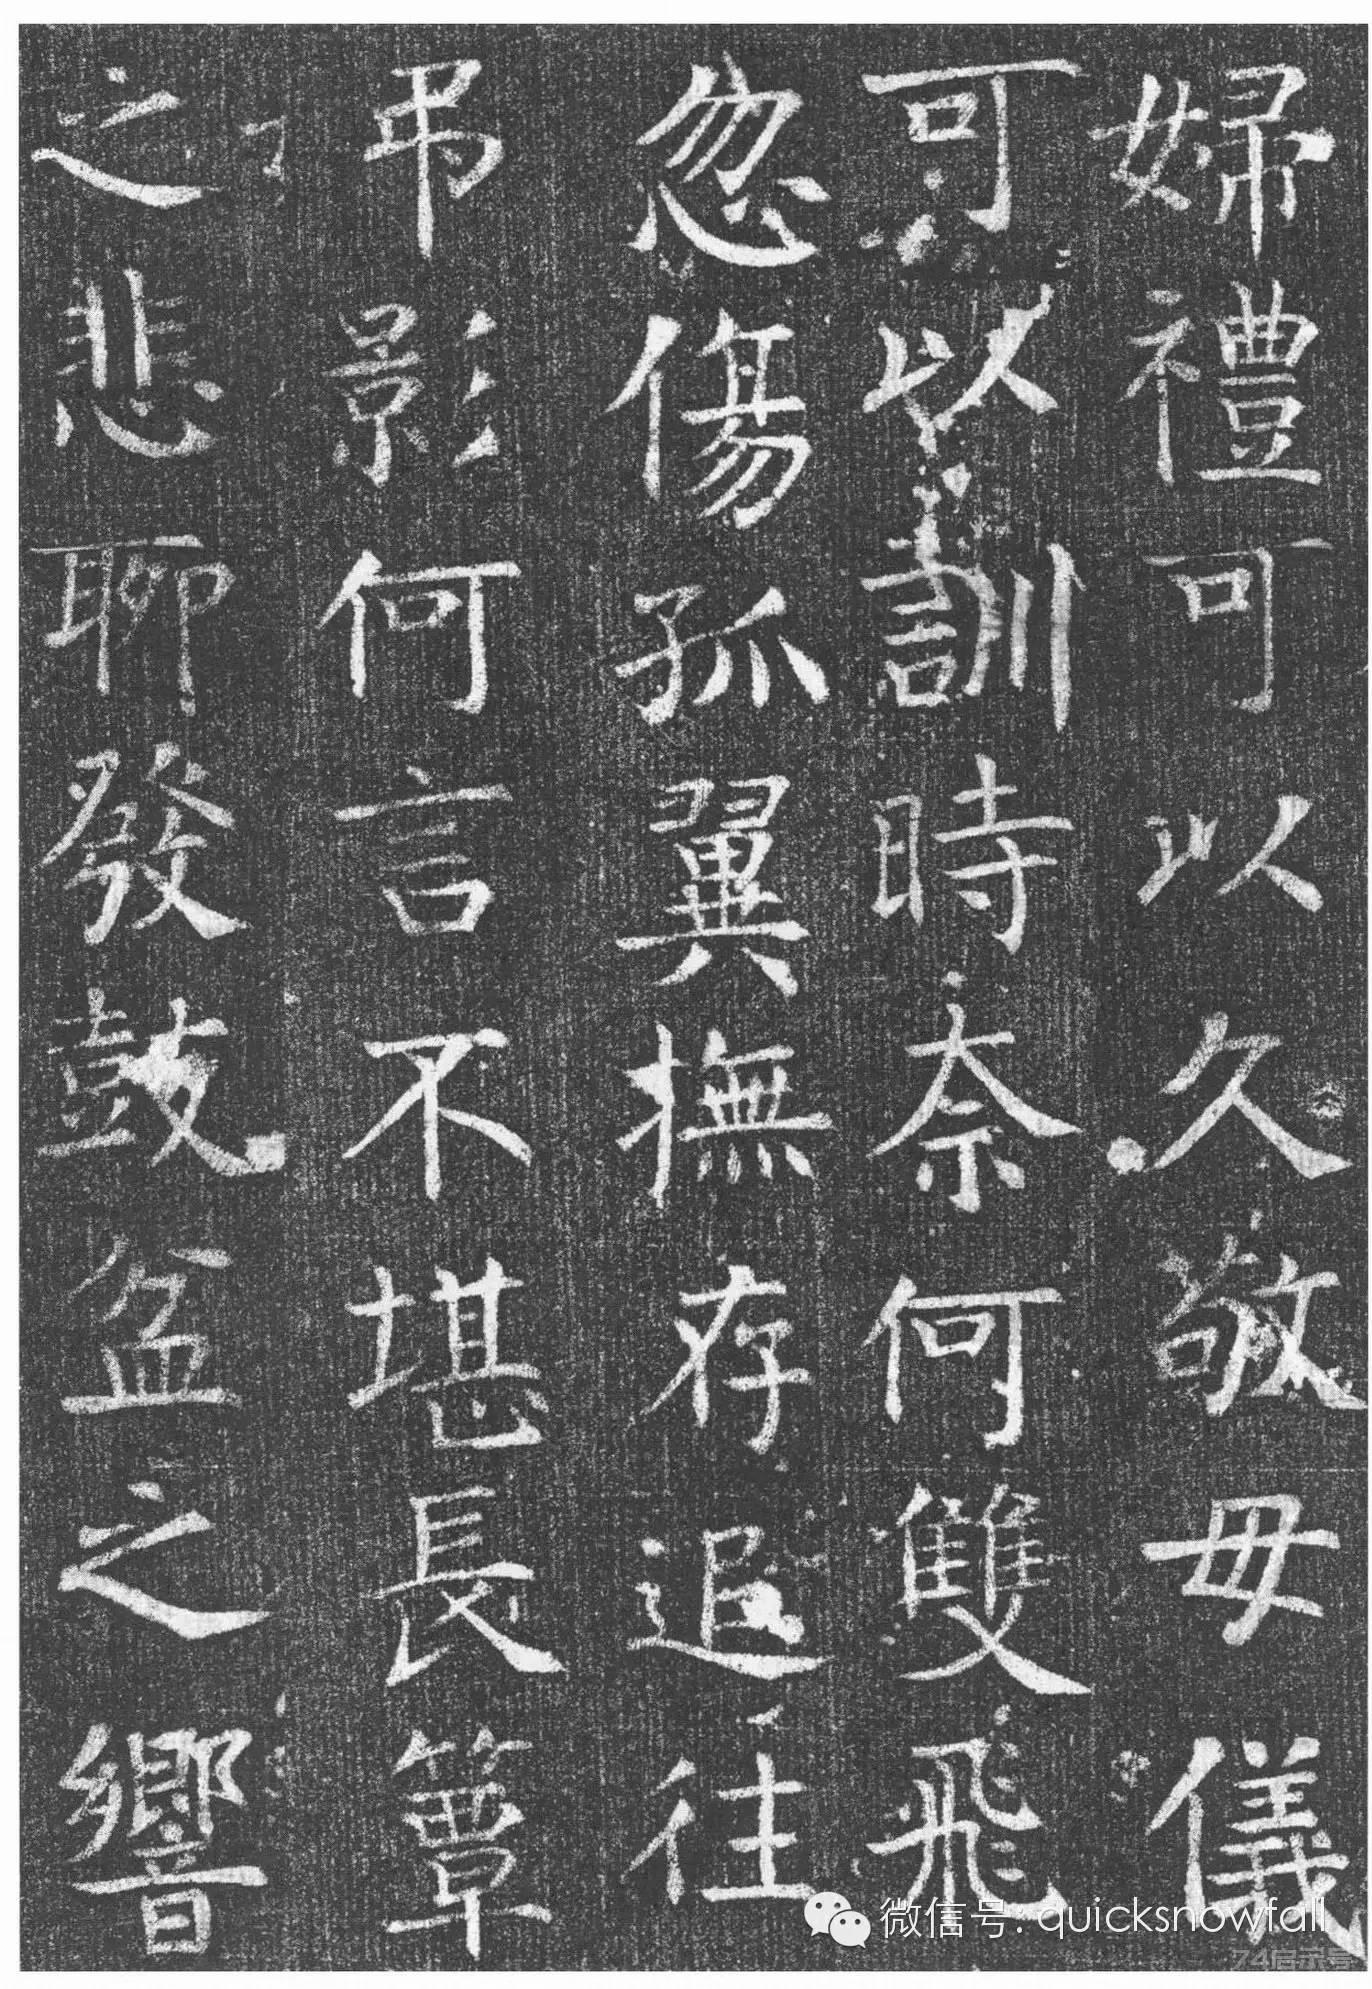 婦禮可以久敬毋儀
可以訓時奈何雙飛
忽傷孤翼撫存追往
弔影何言不堪長簟
之悲聊發鼓盆之響
微信号: quicksnowfall